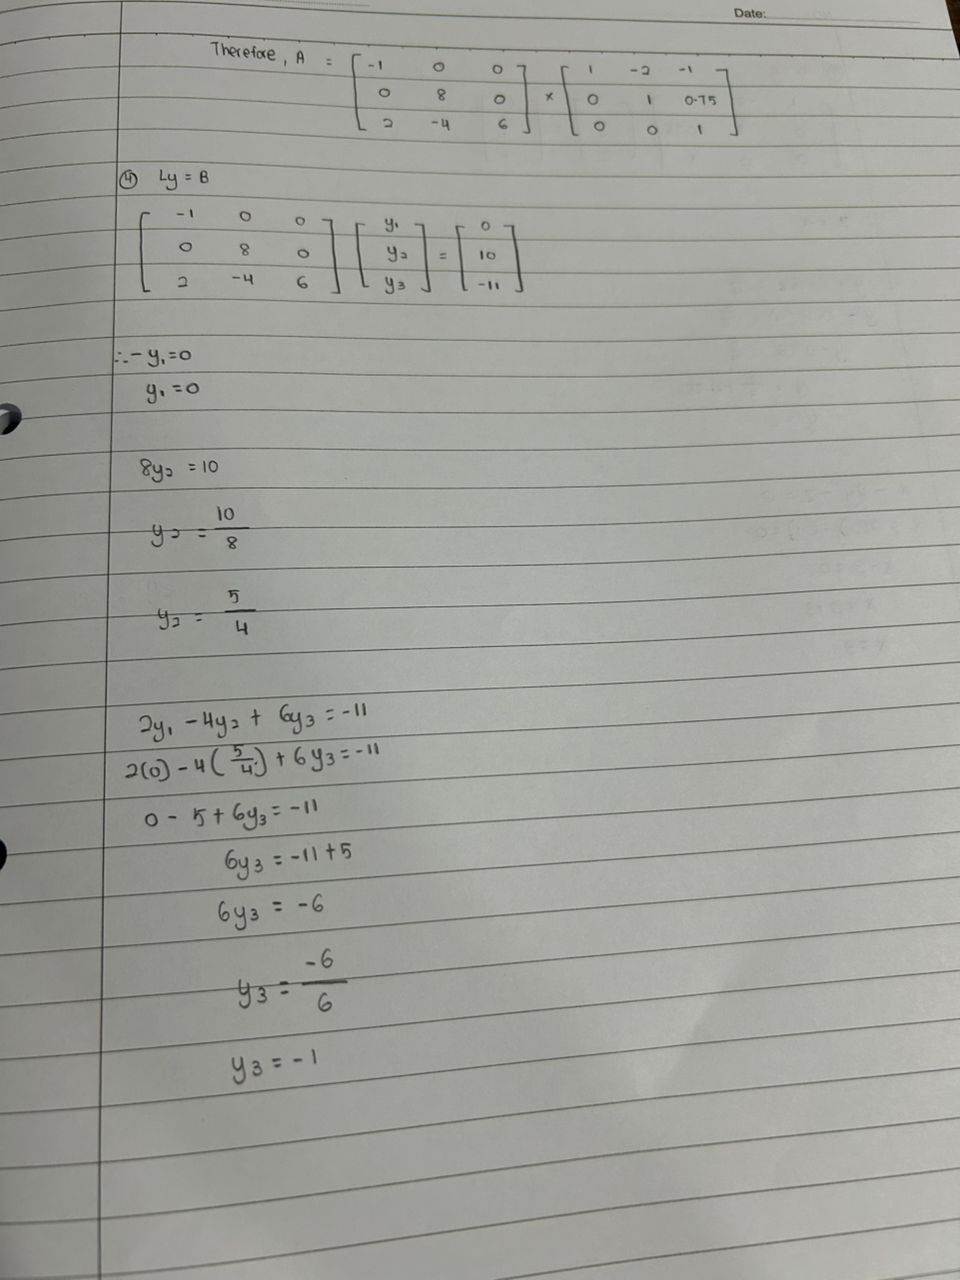 Date:
Therefore, A = [ -1 0 0 ] × [ 1 -2 -1 ]
[ 0 8 0 ] [ 0 1 0.75 ]
[ 2 -4 6 ] [ 0 0 1 ]
④ Ly = B
[ -1 0 0 ] [ y₁ ] = [ 0 ]
[ 0 8 0 ] [ y₂ ] [ 10 ]
[ 2 -4 6 ] [ y₃ ] [ -11 ]
∴ - y₁ = 0
y₁ = 0
8y₂ = 10
y₂ = 10/8
y₂ = 5/4
2y₁ - 4y₂ + 6y₃ = -11
2(0) - 4(5/4) + 6y₃ = -11
0 - 5 + 6y₃ = -11
6y₃ = -11 + 5
6y₃ = -6
y₃ = -6/6
y₃ = -1